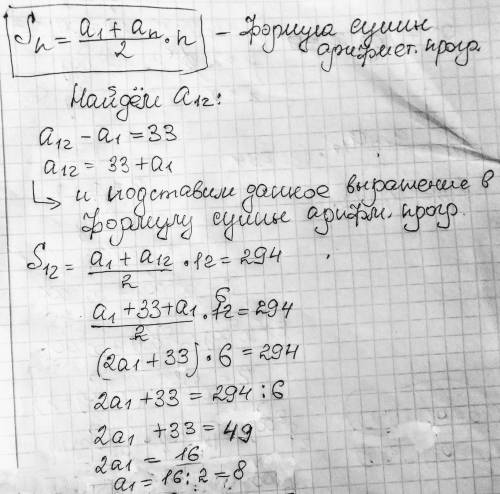 Sₙ = (a₁ + aₙ)/2 · n – Формула суммы
арифмет. прогр.
Найдём a₁₂:
a₁₂ – a₁ = 33
a₁₂ = 33 + a₁
↳ и подставим данное выражение в
формулу суммы арифм. прогр.
S₁₂ = (a₁ + a₁₂)/2 · 12 = 294
(a₁ + 33 + a₁)/2 · 12 6 = 294
(2a₁ + 33) · 6 = 294
2a₁ + 33 = 294 : 6
2a₁ + 33 = 49
2a₁ = 16
a₁ = 16 : 2 = 8